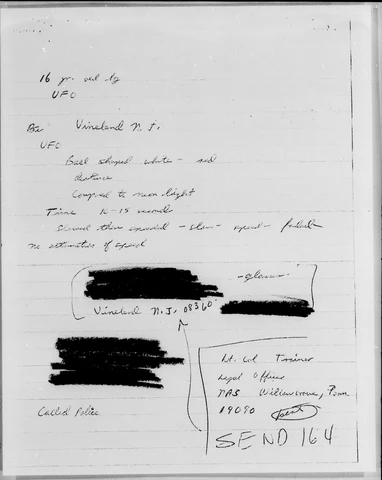 16 yr. old
UFO
Vineland N.J.
UFO
Ball shaped white - red
distance
Compared to moon light
Time 10-15 seconds
slowed then - slow - speed -
no estimation of speed
Vineland N.J. 08360
Lt. Col Trainer
Legal Officer
NAS Willow Grove, Penn
19090
SEND 164
Called Police